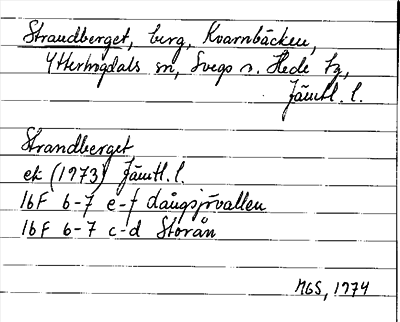 Strandberget, berg, Kvarnbäcken,
Ytterhogdals sn, Svegs o. Hede tg,
Jämtl. l.
Strandberget
ek (1973) Jämtl. l.
16F 6-7 e-f Långsjövallen
16F 6-7 c-d Storån
MGS, 1974